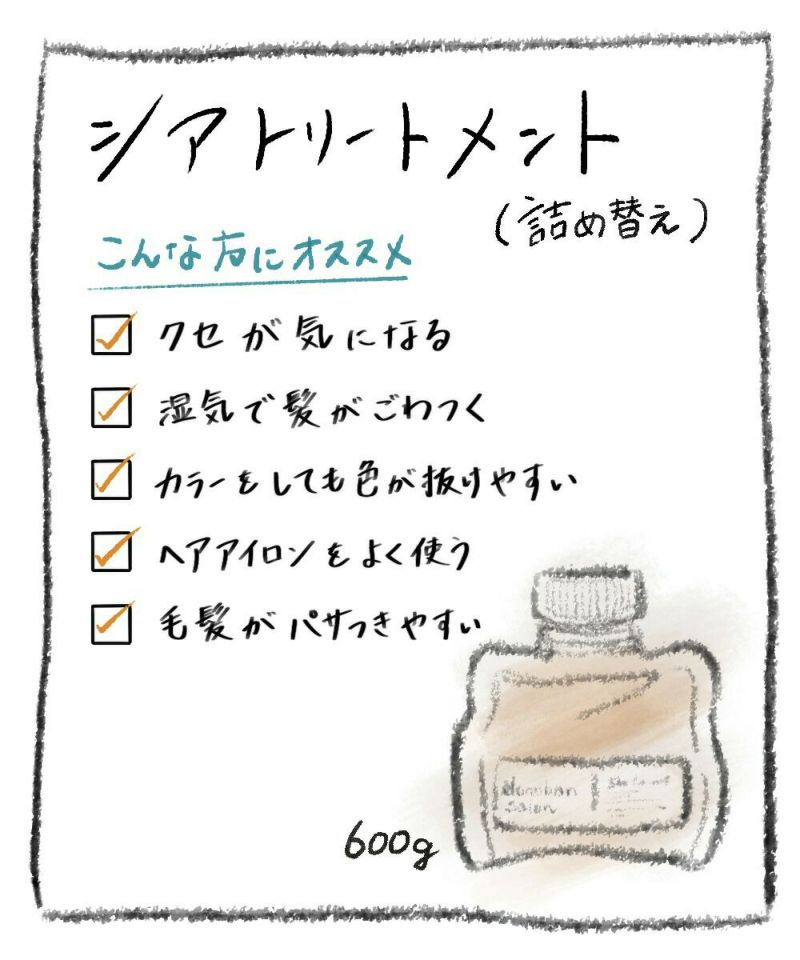 シアトリートメント
(詰め替え)
こんな方にオススメ
クセが気になる
湿気で髪がごわつく
カラーをしても色が抜けやすい
ヘアアイロンをよく使う
毛髪がパサつきやすい
Salon
600g